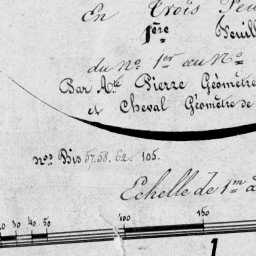 En Trois Feu
1ère Feuill
du No. 1er au No.
Par Ate Pierre Géomètre
et Cheval Géomètre de
nos. Bis 57.58. 62. 105.
Echelle de 1m à
10 30 40 50 100 150
1